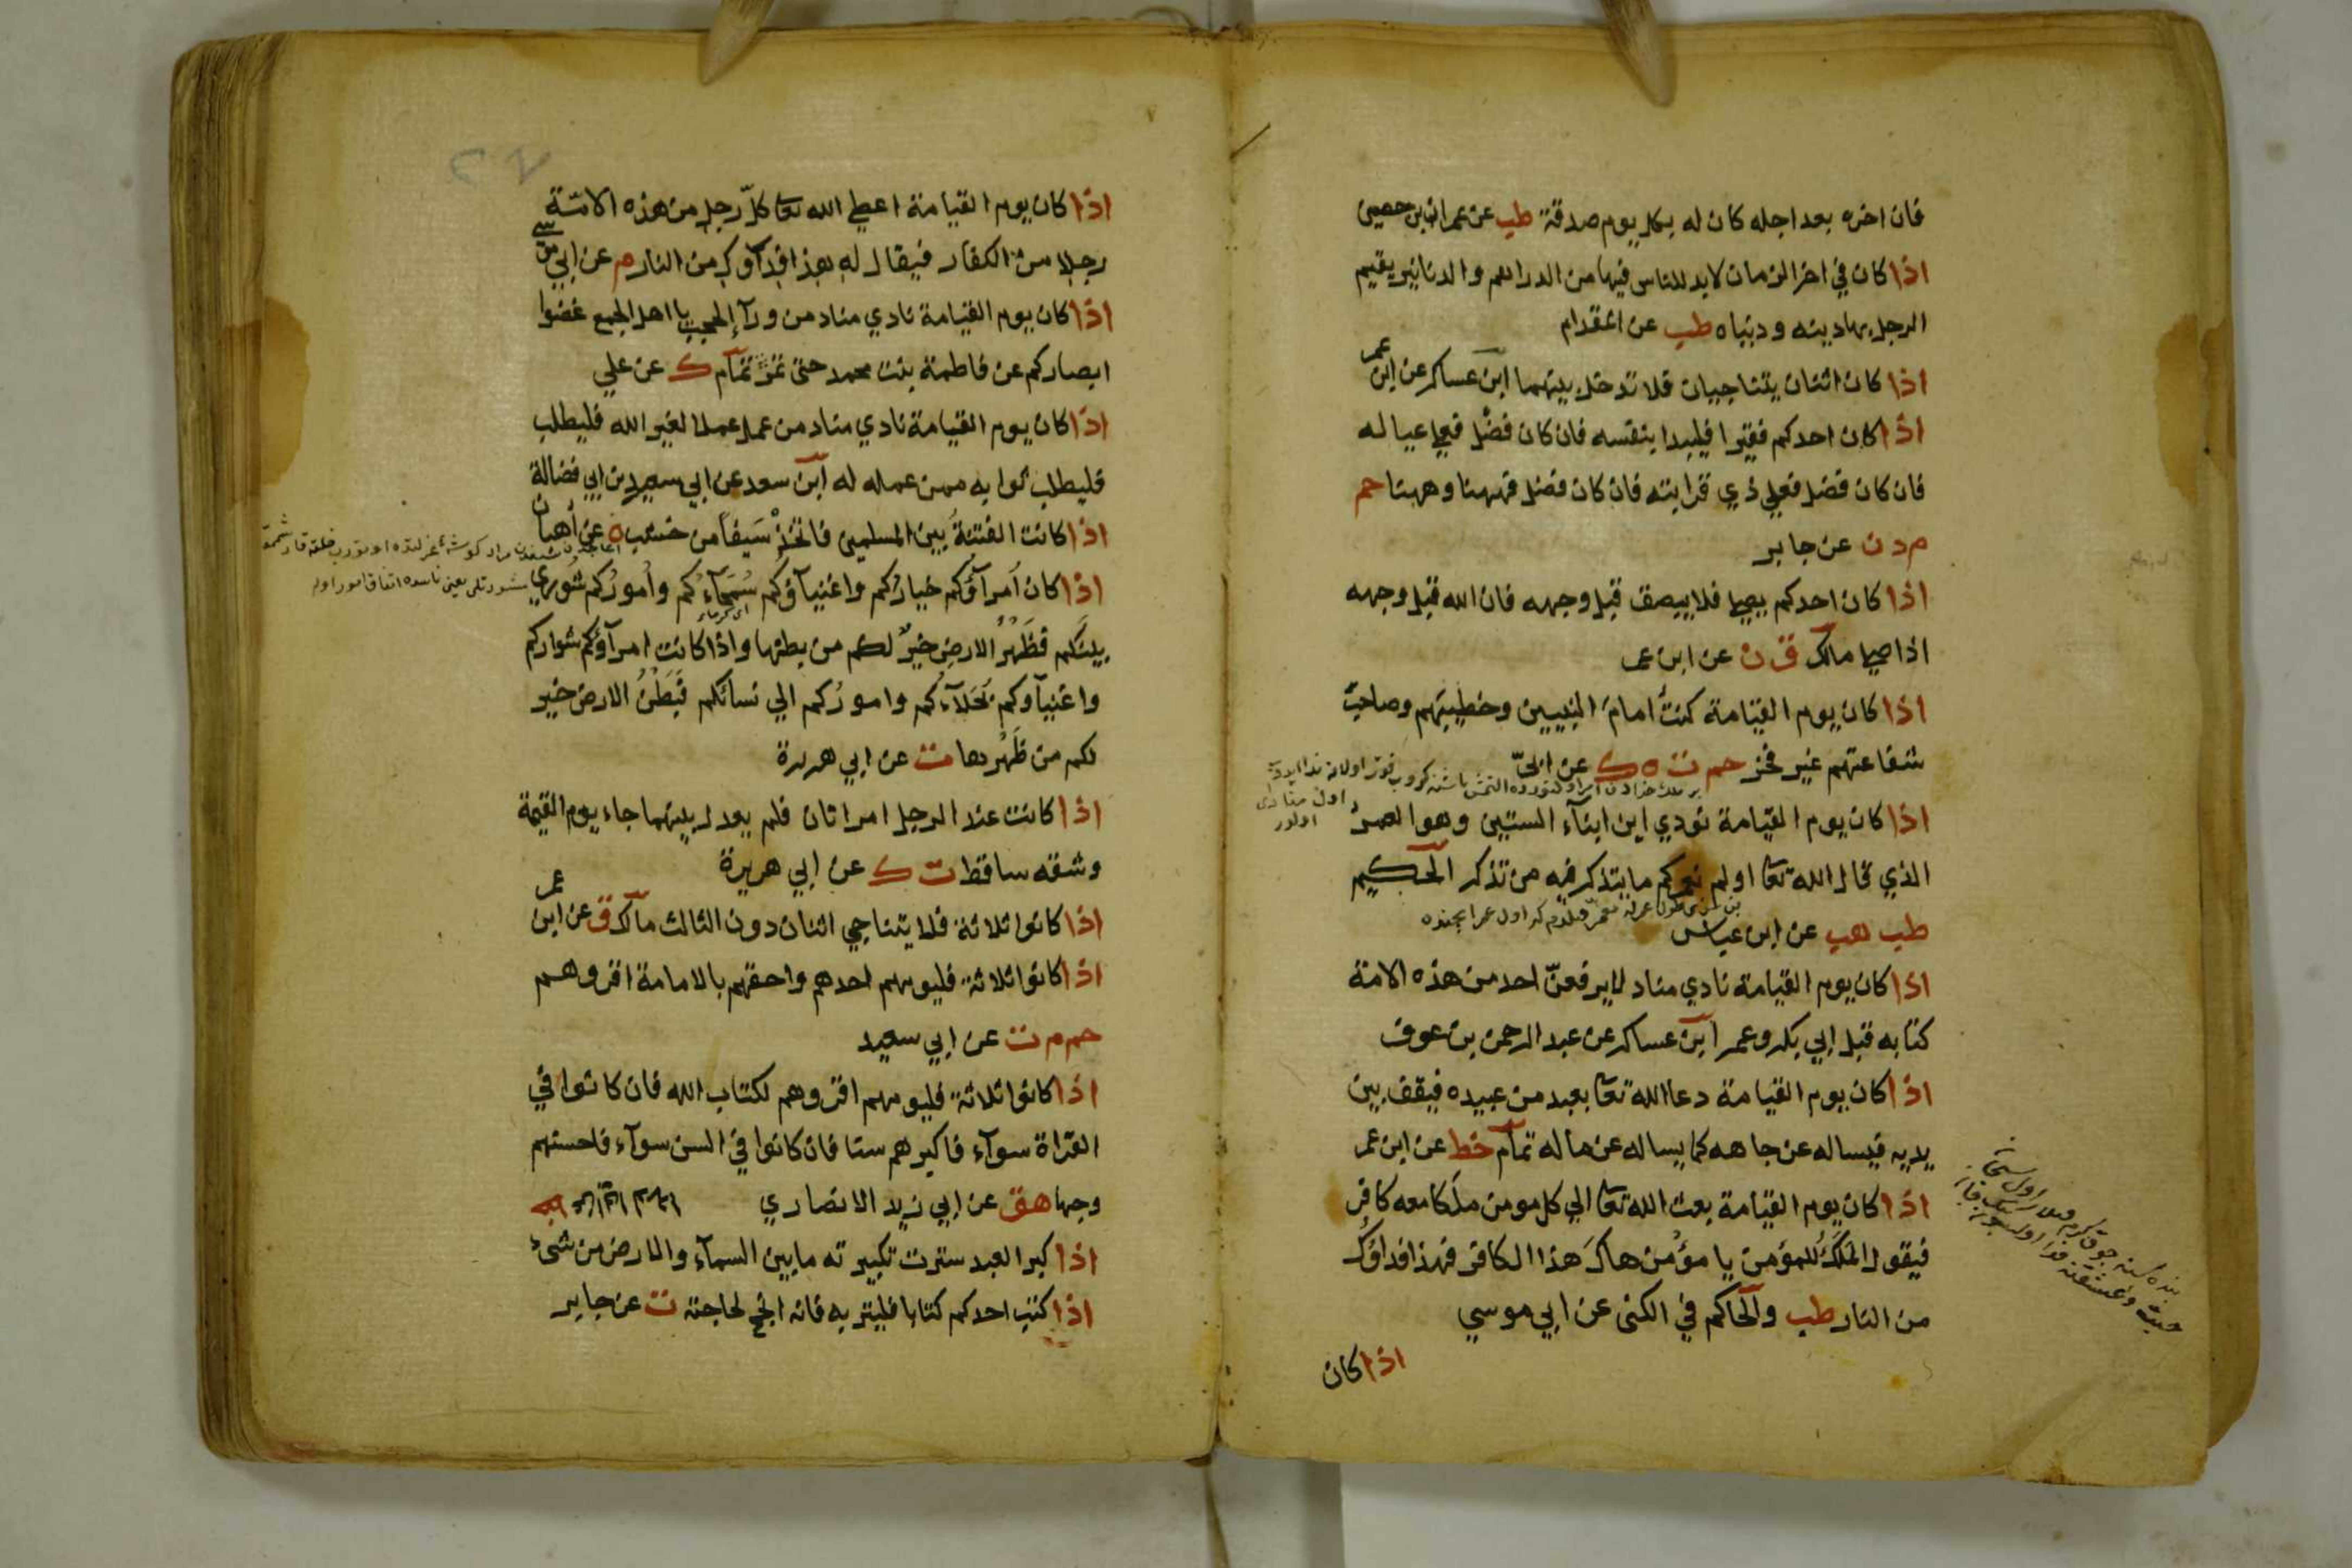 فان اخره بعد اجله كان له بكل يوم صدقة طب عن عمران بن حصين
اذا كان في اخر الزمان لابد للناس فيها من الدراهم والدنانير يقيم
الرجل بها دينه ودنياه طب عن المقدام
اذا كان اثنان يتناجيان فلا تدخل بينهما ابن عساكر عن ابن عمر
اذا كان احدكم فقيرا فليبدا بنفسه فان كان فضل فعلى عياله
فان كان فضل فعلي ذي قرابته فان كان فضل فههنا وههنا حم
م د ن عن جابر
اذا كان احدكم يصلي فلا يبصق قبل وجهه فان الله قبل وجهه
اذا صلى مالك ق ن عن ابن عمر
اذا كان يوم القيامة كنت امام النبيين وخطيبهم وصاحب
شفاعتهم غير فخر حم ت ه ك عن ابيّ
اذا كان يوم القيامة نودي اين ابناء الستين وهو العمر
الذي قال الله تعا اولم نعمركم ما يتذكر فيه من تذكر الحكيم
طب هب عن ابن عباس
اذا كان يوم القيامة نادي مناد لا يرفعنّ احد من هذه الامة
كتابه قبل ابي بكر وعمر ابن عساكر عن عبد الرحمن بن عوف
اذا كان يوم القيامة دعا الله تعا بعبد من عبيده فيقف بين
يديه فيساله عن جاهه كما يساله عن ماله تمام خط عن ابن عمر
اذا كان يوم القيامة بعث الله تعا الي كل مومن ملكا معه كافر
فيقول الملك للمؤمن يا مؤمن هاك هذا الكافر فهذا فداؤك
من النار طب والحاكم في الكنى عن ابي موسي
اذا كان
اذا كان يوم القيامة اعطي الله تعا كلّ رجل من هذه الامّة
رجلا من الكفار فيقال له هذا فداؤك من النار م عن ابي موسي
اذا كان يوم القيامة نادي مناد من ورآء الحجب يا اهل الجمع غضوا
ابصاركم عن فاطمة بنت محمد حتى تمرّ تمام ك عن علي
اذا كان يوم القيامة نادي مناد من عمل عملا لغير الله فليطلب
فليطلب ثوابه ممن عمله له ابن سعد عن ابي سعيد بن ابي فضالة
اذا كانت الفتنة بين المسلمين فاتخذ سيفا من خشب ه عن أهبان
اذا كان أمرآؤكم خياركم واغنيآؤكم سُمَحآءكم وأموركم شوري
بينكم فظَهْرُ الارض خير لكم من بطنها واذا كانت امرآؤكم شراركم
واغنيآوكم بُخَلآءكم واموركم الي نسائكم فبَطْنُ الارض خير
لكم من ظَهْرها ت عن ابي هريرة
اذا كانت عند الرجل امراتان فلم يعدل بينهما جاء يوم القيمة
وشقه ساقط ت ك عن ابي هريرة
اذا كانوا ثلاثة فلا يتناجي اثنان دون الثالث مالك ق عن ابن عمر
اذا كانوا ثلاثة فليومهم احدهم واحقهم بالامامة اقروهم
حم م ن عن ابي سعيد
اذا كانوا ثلاثة فليومهم اقروهم لكتاب الله فان كانوا في
القراة سوآء فاكبرهم سنا فان كانوا في السن سوآء فاحسنهم
وجها هق عن ابي زيد الانصاري
اذا كبر العبد سترت تكبيرته ما بين السمآء والارض من شيء
اذا كتب احدكم كتابا فليتربه فانه انجح لحاجته ت عن جابر